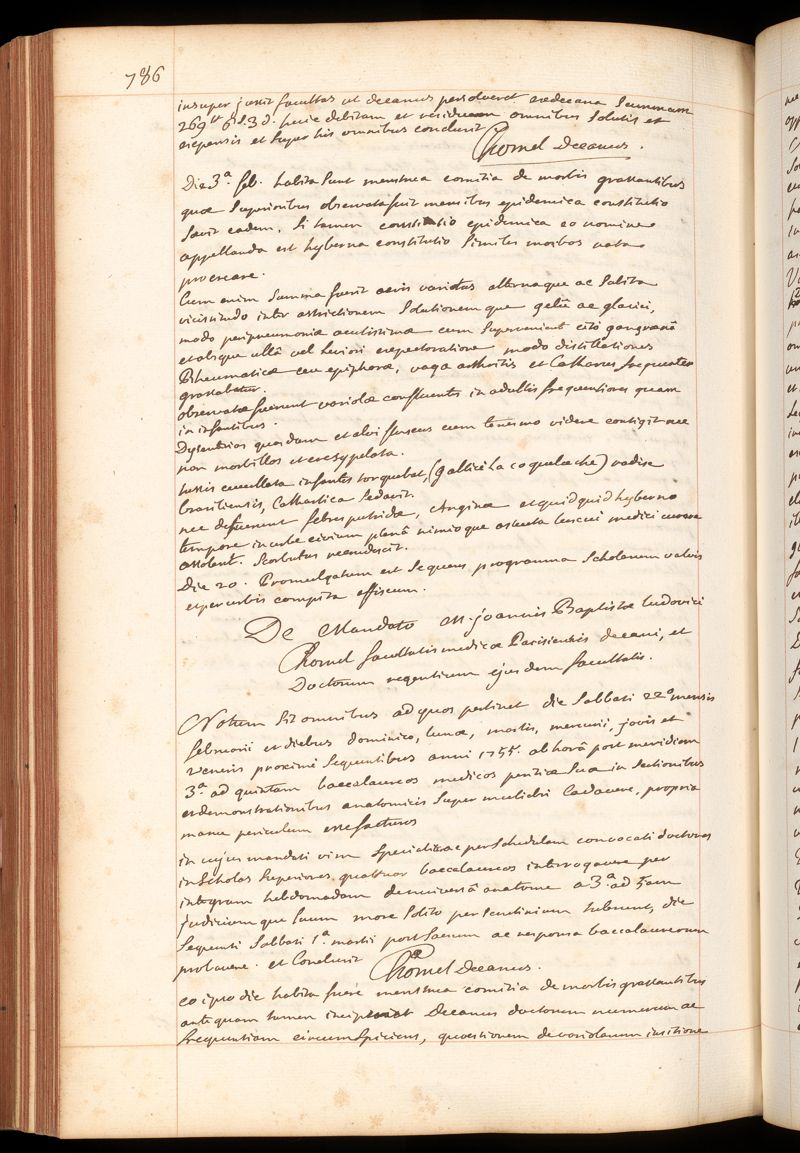 786
insuper jussit facultas ut decanus persolveret exdecano Summam
269 ₶ 6 s. 3 d. jure debitam et residuam omnibus solutis et
expensis et super his omnibus conclusit
Chomel Decanus.
Die 3ª. feb. habita sunt menstrua comitia de morbis grassantibus
quæ Superioribus observata fuit mensibus epidemica constitutio
fuit eadem, si tamen constitutio epidemica eo nomine
appellanda est hyberna constitutio similes morbos nata
procreare.
Cum enim Summa fuerit aeris varietas alternaque ac Subita
vicissitudo inter astrictionem Solutionemque gelu ac glaciei,
modo peripneumoniæ acutissimæ cum Superveniente citò gangrænâ
et absque ullâ vel leviori expectoratione modo distillationes
Rheumaticæ ceu epiphoræ, vaga arthritis et Catharus frequenter
grassabatur.
observatæ fuerunt variolæ confluentes in adultis frequentiores quam
in infantibus.
Dysenterias quasdam et alvi fluxus cum tenesmo videre contigit nec
non morbillos et eresypelata.
tussis cucullata infantes torquebat, (gallicè La coqueluche) radise
brasiliensis, Cathartica Sedavit.
nec defuerunt febres putridæ, Anginæ et quidquid hyberno
tempore in urbe civium plenâ nimioque æstuta luscui medici curare
assolent. Scorbutus recruduscit.
Die 20. Promulgatum est Sequens programma Scholarum valvis
et per urbis compita affixum.
De Mandato M. Joannis Baptistæ Ludovici
Chomel facultatis medicæ Parisiensis decani, et
Doctorum regentium ejusdem facultatis.
Notum sit omnibus ad quos pertinet die Sabbati 22º mensis
februarii et diebus dominico, lunæ, martis, mercurii, jovis et
veneris proximè Sequentibus anni 1755. ab horâ post meridiem
3ª. ad quintam baccalaureos medicos peritiæ Suæ in Sectionibus
et demonstrationibus anatomicis Super muliebri Cadavere, propria
manu periculum esse facturos
in cujus mandati vim specialitæ per Schedulam convocati doctores
in Scholas Superiores quattuor baccalaureos interrogavere per
integram hebdomadam de universâ anatome a 3ª. ad 5am
judiciumque Suum more Solito per Scrutinium tulerunt, die
Sequenti Sabbati 1ª. martii post Sacrum ac responsa baccalaureorum
probavere. et Conclusit Chomel Decanus.
eo ipso die habita fuere menstrua comitia de morbis grassantibus
antequam tamen inciperent Decanus doctorum numerum ac
frequentiam circumspiciens, quæstionem de variolarum insitione